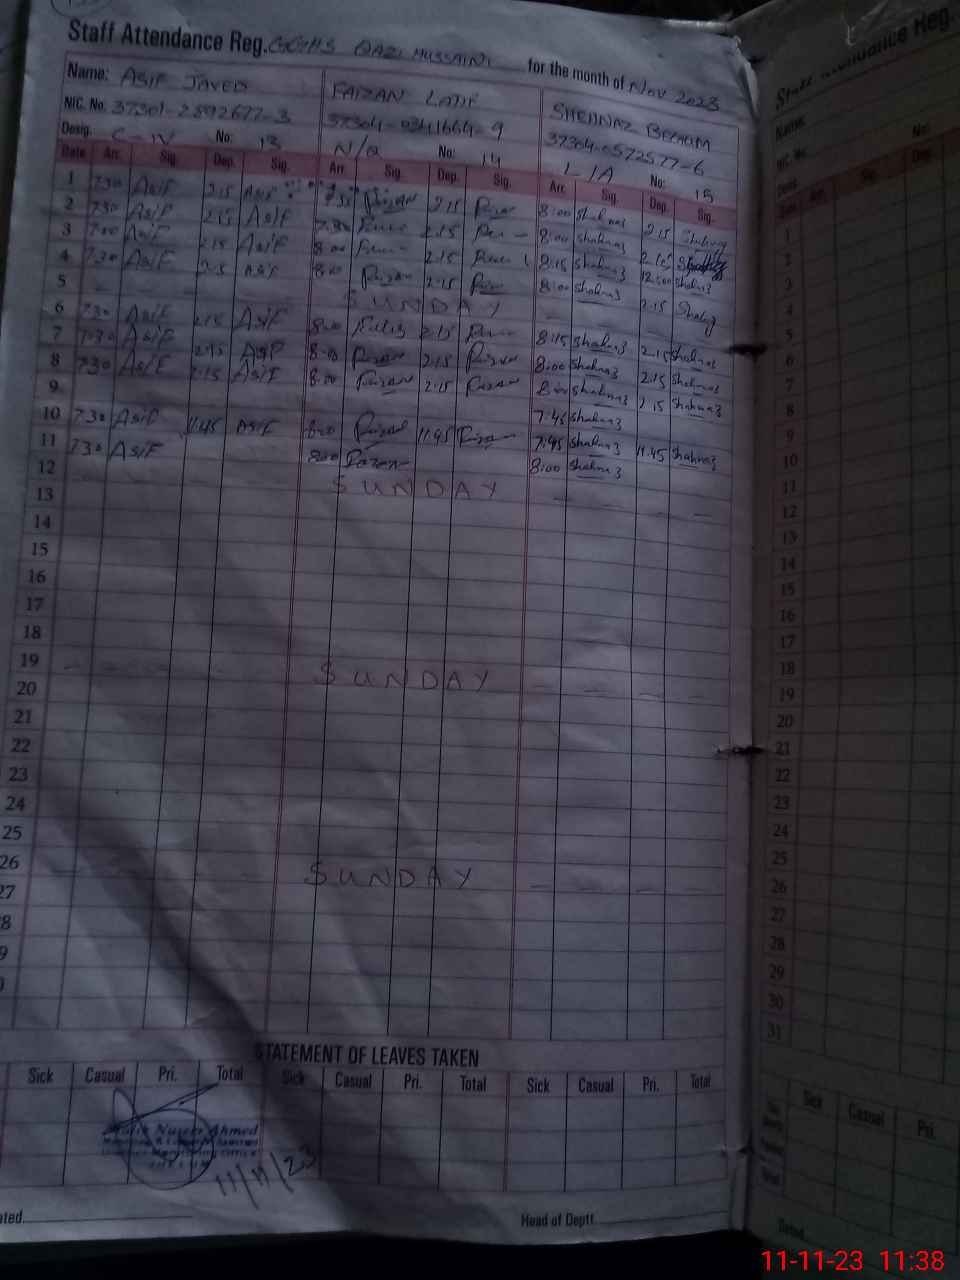 Staff Attendance Reg. GGHS QAZI HUSSAIN for the month of Nov 2023
Name: ASIF JAVED FAIZAN LATIF SHEHNAZ BEGHAM
NIC. No. 37301-2892677-3 37304-0572577-6
Desig. C-IV No: 13 N/Q No: 14 L/A No: 15
Date Arr. Sig. Dep. Sig. Arr. Sig. Dep. Sig. Arr. Sig. Dep. Sig.
1 7.30 Asif 2.15 Asif 7.30 Faizan 2.15 Faizan 8:00 Shahnaz 2.15 Shahnaz
2 7.30 Asif 2.15 Asif 7.30 2.15 8:00 Shahnaz 2.15
3 7.00 Asif 2.15 Asif 8.00 2.15 8:15 Shahnaz 12:00 Shahnaz
4 7.30 Asif 2.15 Asif 8.00 Faizan 2.15 8:00 Shahnaz 2.15 Shahnaz
5 SUNDAY
6 7.30 Asif 2.15 Asif 8.00 2.15 8:15 Shahnaz 2.15 Shahnaz
7 7.30 Asif 2.15 Asif 8.00 Faizan 2.15 Faizan 8:00 Shahnaz 2.15 Shahnaz
8 7.30 Asif 2.15 Asif 8.00 Faizan 2.15 Faizan 8:00 Shahnaz 2.15 Shahnaz
9 7:45 Shahnaz
10 7.30 Asif 11.45 Asif 8.00 Faizan 11.45 Faizan 7:45 Shahnaz 11.45 Shahnaz
11 7.30 Asif 8.00 Faizan 8:00 Shahnaz
12 SUNDAY
13
14
15
16
17
18
19 SUNDAY
20
21
22
23
24
25
26 SUNDAY
27
8
9
STATEMENT OF LEAVES TAKEN
Sick Casual Pri. Total Sick Casual Pri. Total Sick Casual Pri. Total
Ahmed
11/11/23
ated. Head of Deptt
Attendance Reg.
Name:
No:
Arr. Sig. Dep.
1
2
3
4
5
6
7
8
9
10
11
12
13
14
15
16
17
18
19
20
21
22
23
24
25
26
27
28
29
30
31
Sick Casual Pri.
Total
Dated
11-11-23 11:38